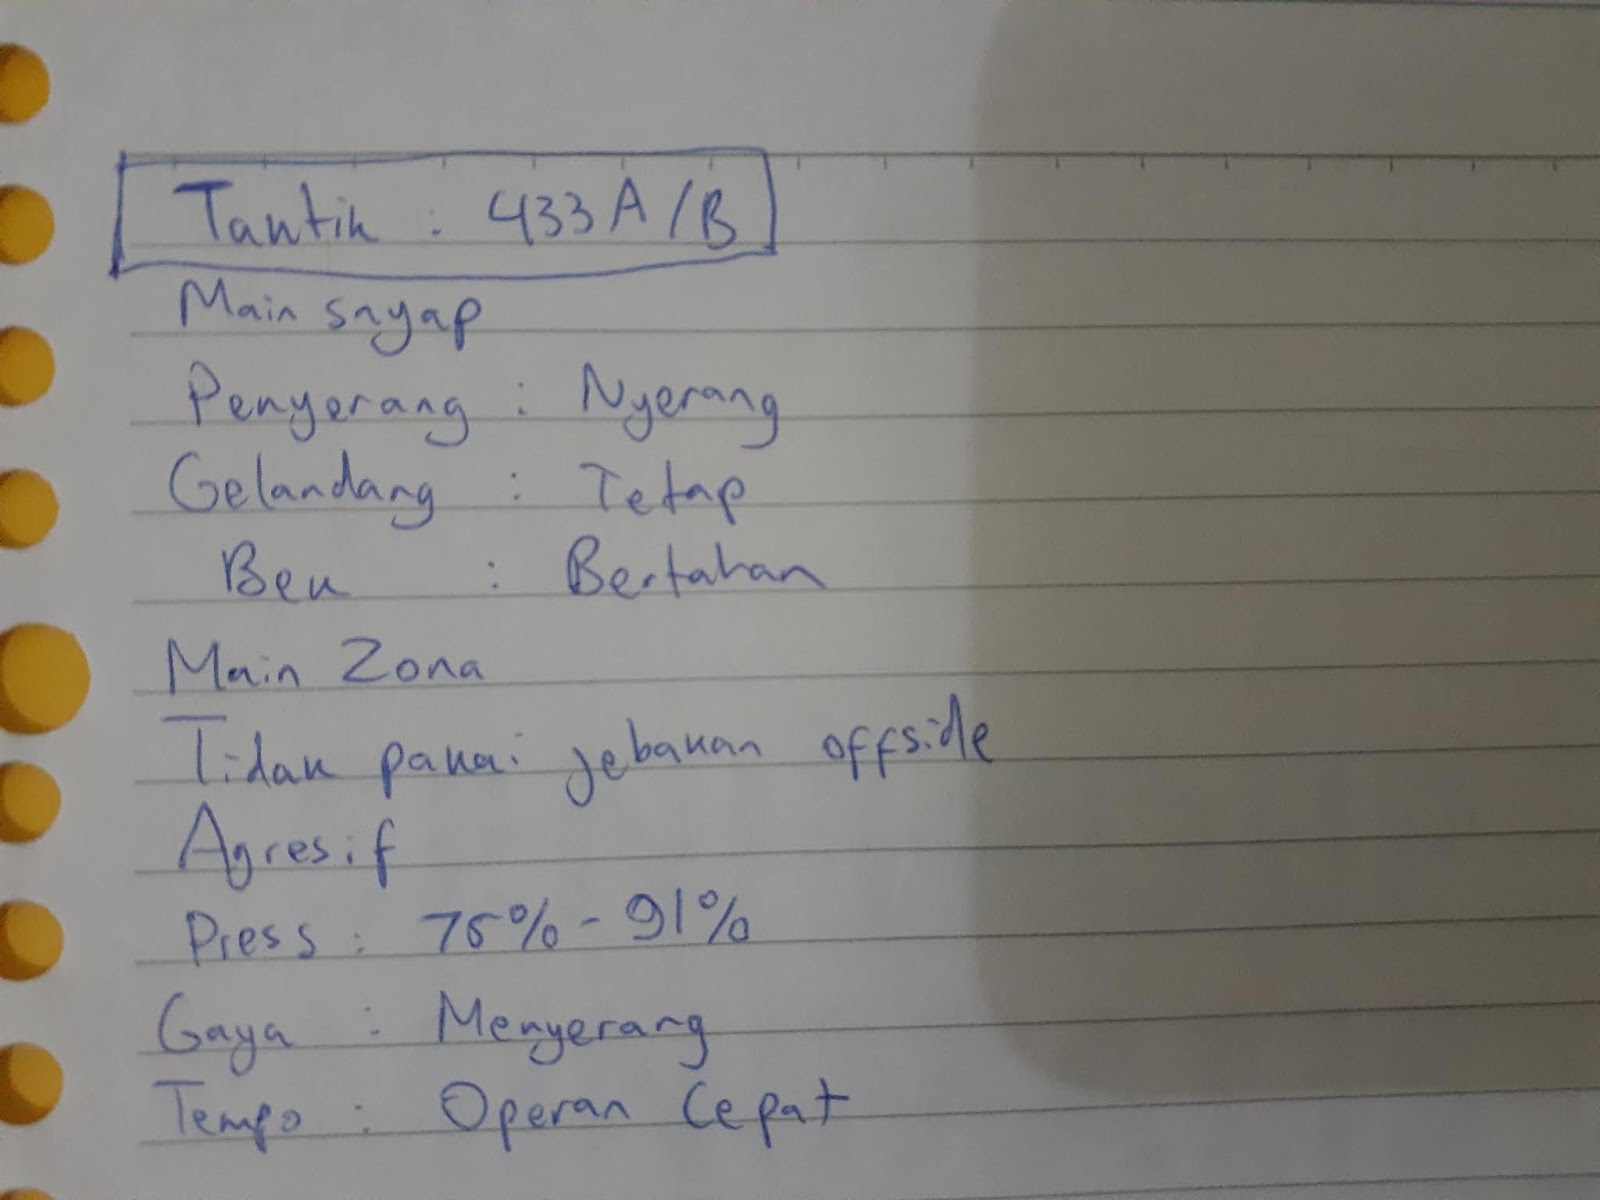 Taktik : 433 A/B
Main sayap
Penyerang : Nyerang
Gelandang : Tetap
Bek : Bertahan
Main Zona
Tidak pakai jebakan offside
Agresif
Press : 76% - 91%
Gaya : Menyerang
Tempo : Operan Cepat